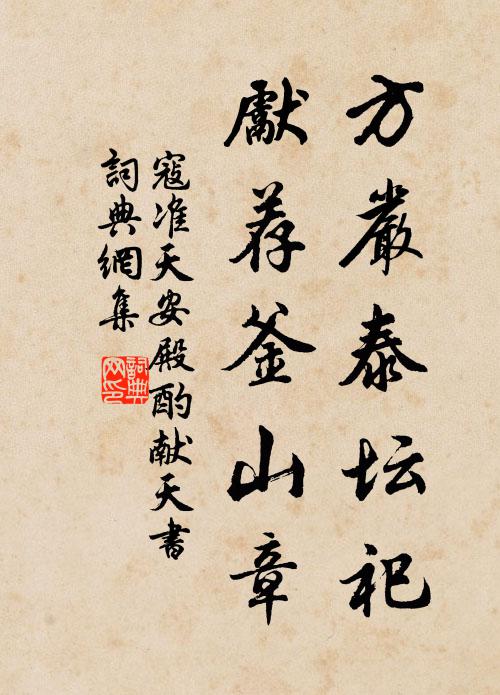 方嚴泰坛祀
獻荐釜山章
寇准天安殿酌献天書
詞典網集
詞典网印